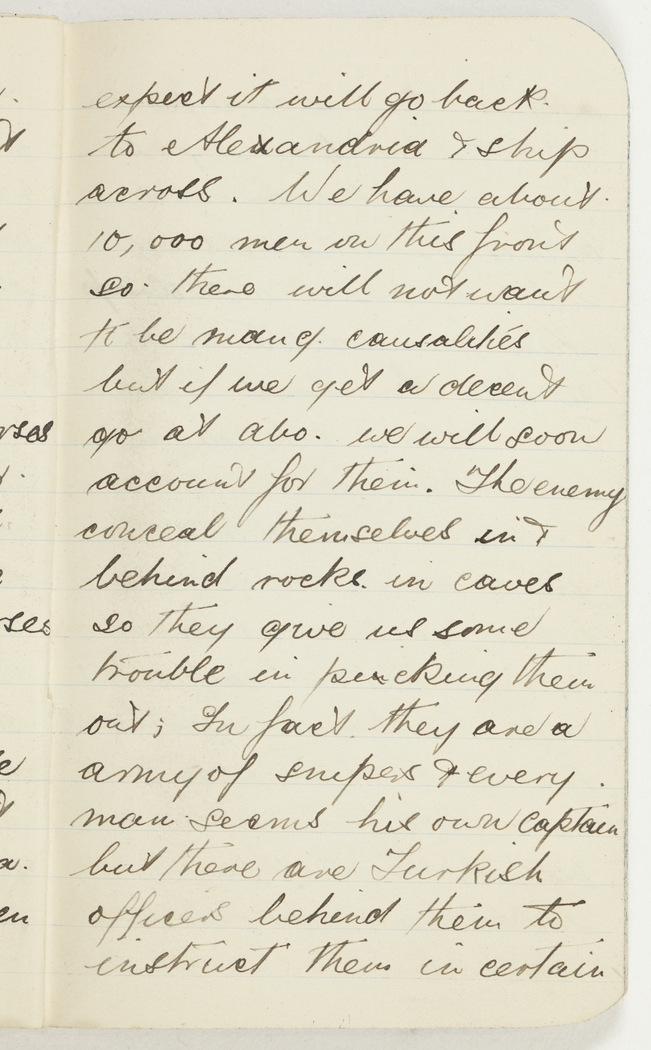 expect it will go back.
to Alexandria & ship
across. We have about.
10,000 men on this front
so. there will not want
to be many. causalities
but if we get a decent
go at abo. we will soon
account for them. The enemy
conceal themselves in &
behind rocks. in caves
so they give us some
trouble in pincking them
out; In fact. they are a
army of snipers & every.
man seems his own captain
but there are Turkish
officers behind them to
instruct them in certain